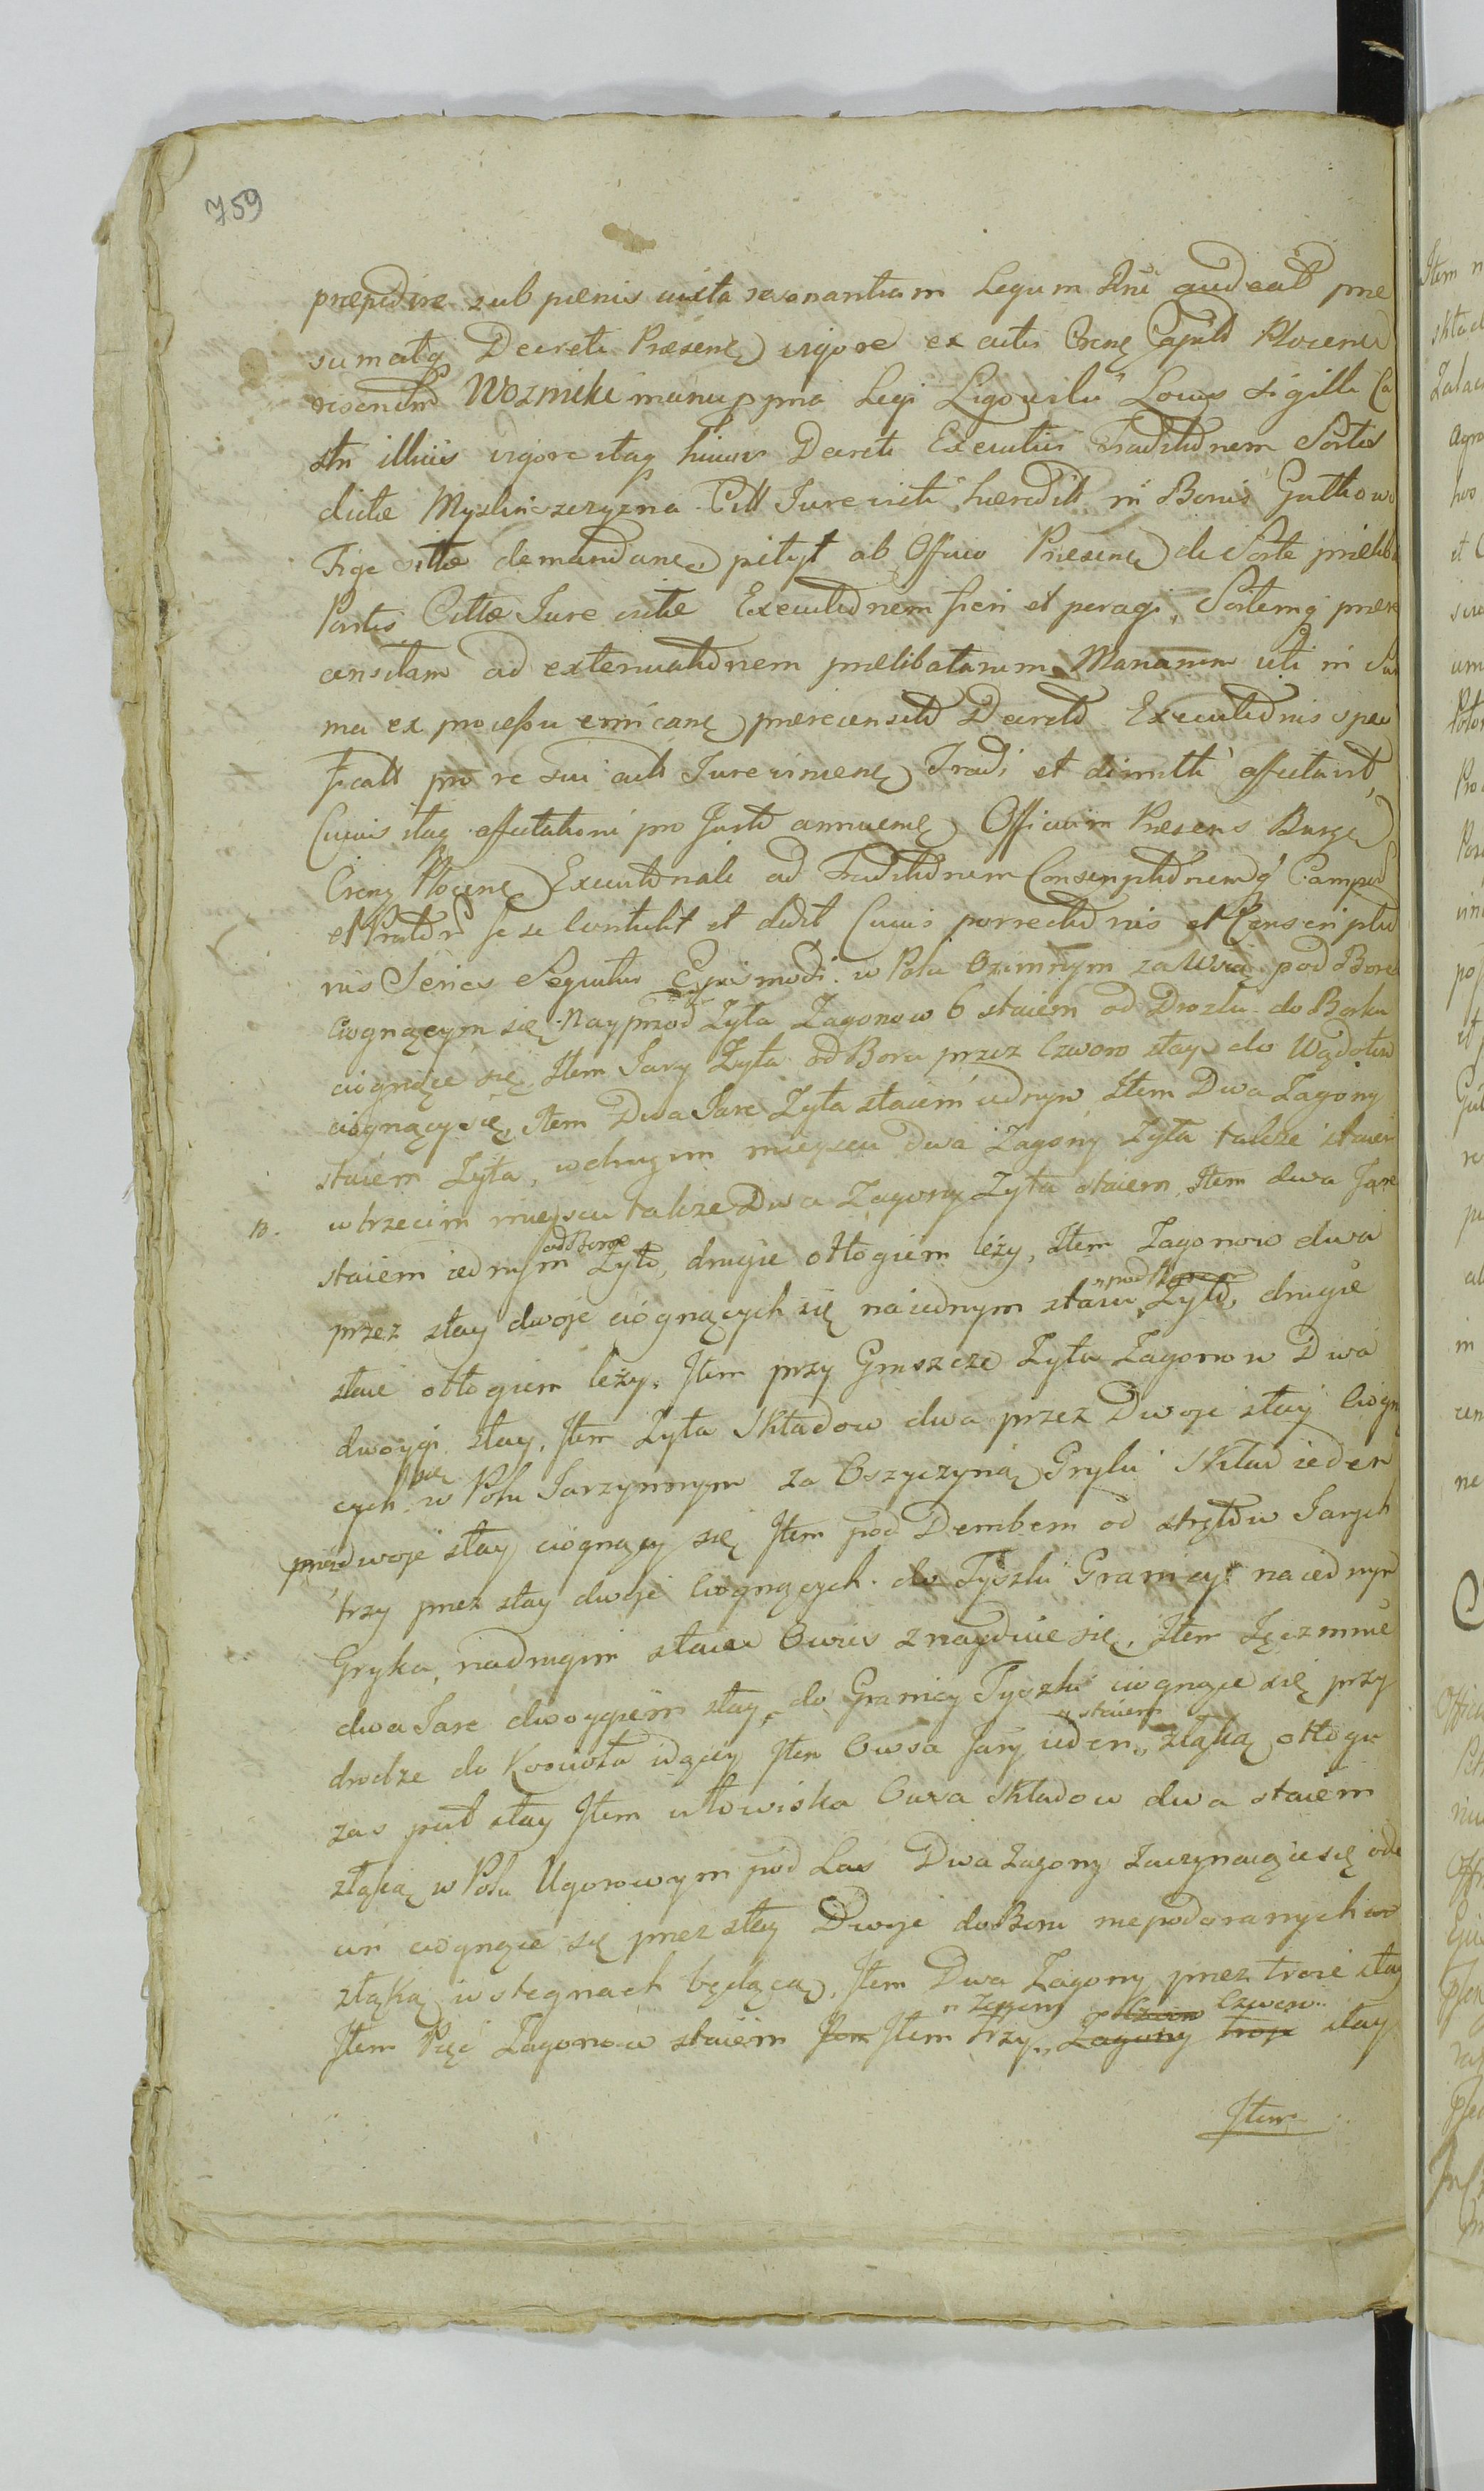 759
præpedire sub pœnis iuxta sesonantiam Legum Dni audeat præ
sumatq Decreti Præsenę vigore ex actis Crenę Capitł Plocenę
Woznicki manu ppria Legi Ligowski Locus sigilli Ca
stri illius vigore itaq huius Decreti Executius Traditionem Sortis
dictæ Myslinszczyzna Citt Jure victi hæredit in Bonis Gutkowo
demandanę petyt ab Officio Præsenę de Sorte prælib
Partis Cittæ Jure victæ Executionem fieri et peragi, Sortemq prære
censitam ad extenuationem prælibatarum Marcarum uti in Sum
ma ex processu emicanę prærecensito Decreto Executionis speci
ficatt pro re sui acti Jure vincenę Tradi et dimitti affectavit,
Cuius itaq affectationi pro Justo annuenę Officium Præsens Burge
Crenę Plocenę Executionale ad Traditionem Conscriptionemq Campor
et Prator se se Contulit et dedit Cuius porrectionis et Conscriptio
nis Series Sequitur Ejusmodi. w Polu Ozimnym za Wsią pod Borek
ciognącym się. Nayprzod Zyta Zagonow 6 staiem od Drozki do Borku
ciognące się, Item Jary Zyta od Boru przez Czworo stay do Wądołu
ciognący się, Item Dwa Jare Zyta staiem iednym, Item Dwa Zagony
staiem Zyta, w drugim mieyscu dwa Zagony Zyta takze staiem
w trzecim mieyscu takze Dwa Zagony Zyta staiem, Item dwa Jare
od Boru
staiem iednym Zyto, drugie otłogiem leży, Item Zagonow dwa
przez stay dwoje ciognących się na iednym staiu Zyto, drugie
staie otłogiem leży. Item przy Gruszcze Zyta Zagonow Dwa
dwoygi stay, Item Zyta Składow dwa przez Dwoje stay Ciogn
się
cych. w Polu Jarzynnym za Oszyczyną Gryki Skład ieden
przez dwoje stay ciognący się Item pod Dembem od Jarych
trzy przez stay dwoje Ciognących. do Tyszki Granicy na iednym
Gryka, na drugim staiu Owies znayduie się, Item Jęczmnie
dwa Jare dwoygiem stay, do Granicy Tyszki ciognące się przy
staiem
drodze do Kosciola idącey Item Owsa Jary ieden, złąką otłogu
zas puł stay Item u łowiska Owsa Składow dwa staiem
złąką w Polu Ugorowym pod Las Dwa Zagony Zaczynaiące się od
ciognące się przez stay Dwoje do Boru niepodoranych
złąką w stegnach będącą, Item Dwa Zagony przez troie stay
Czworo
Item Pięć Zagonow staiem Item Trzy Zagony troje stay
Item